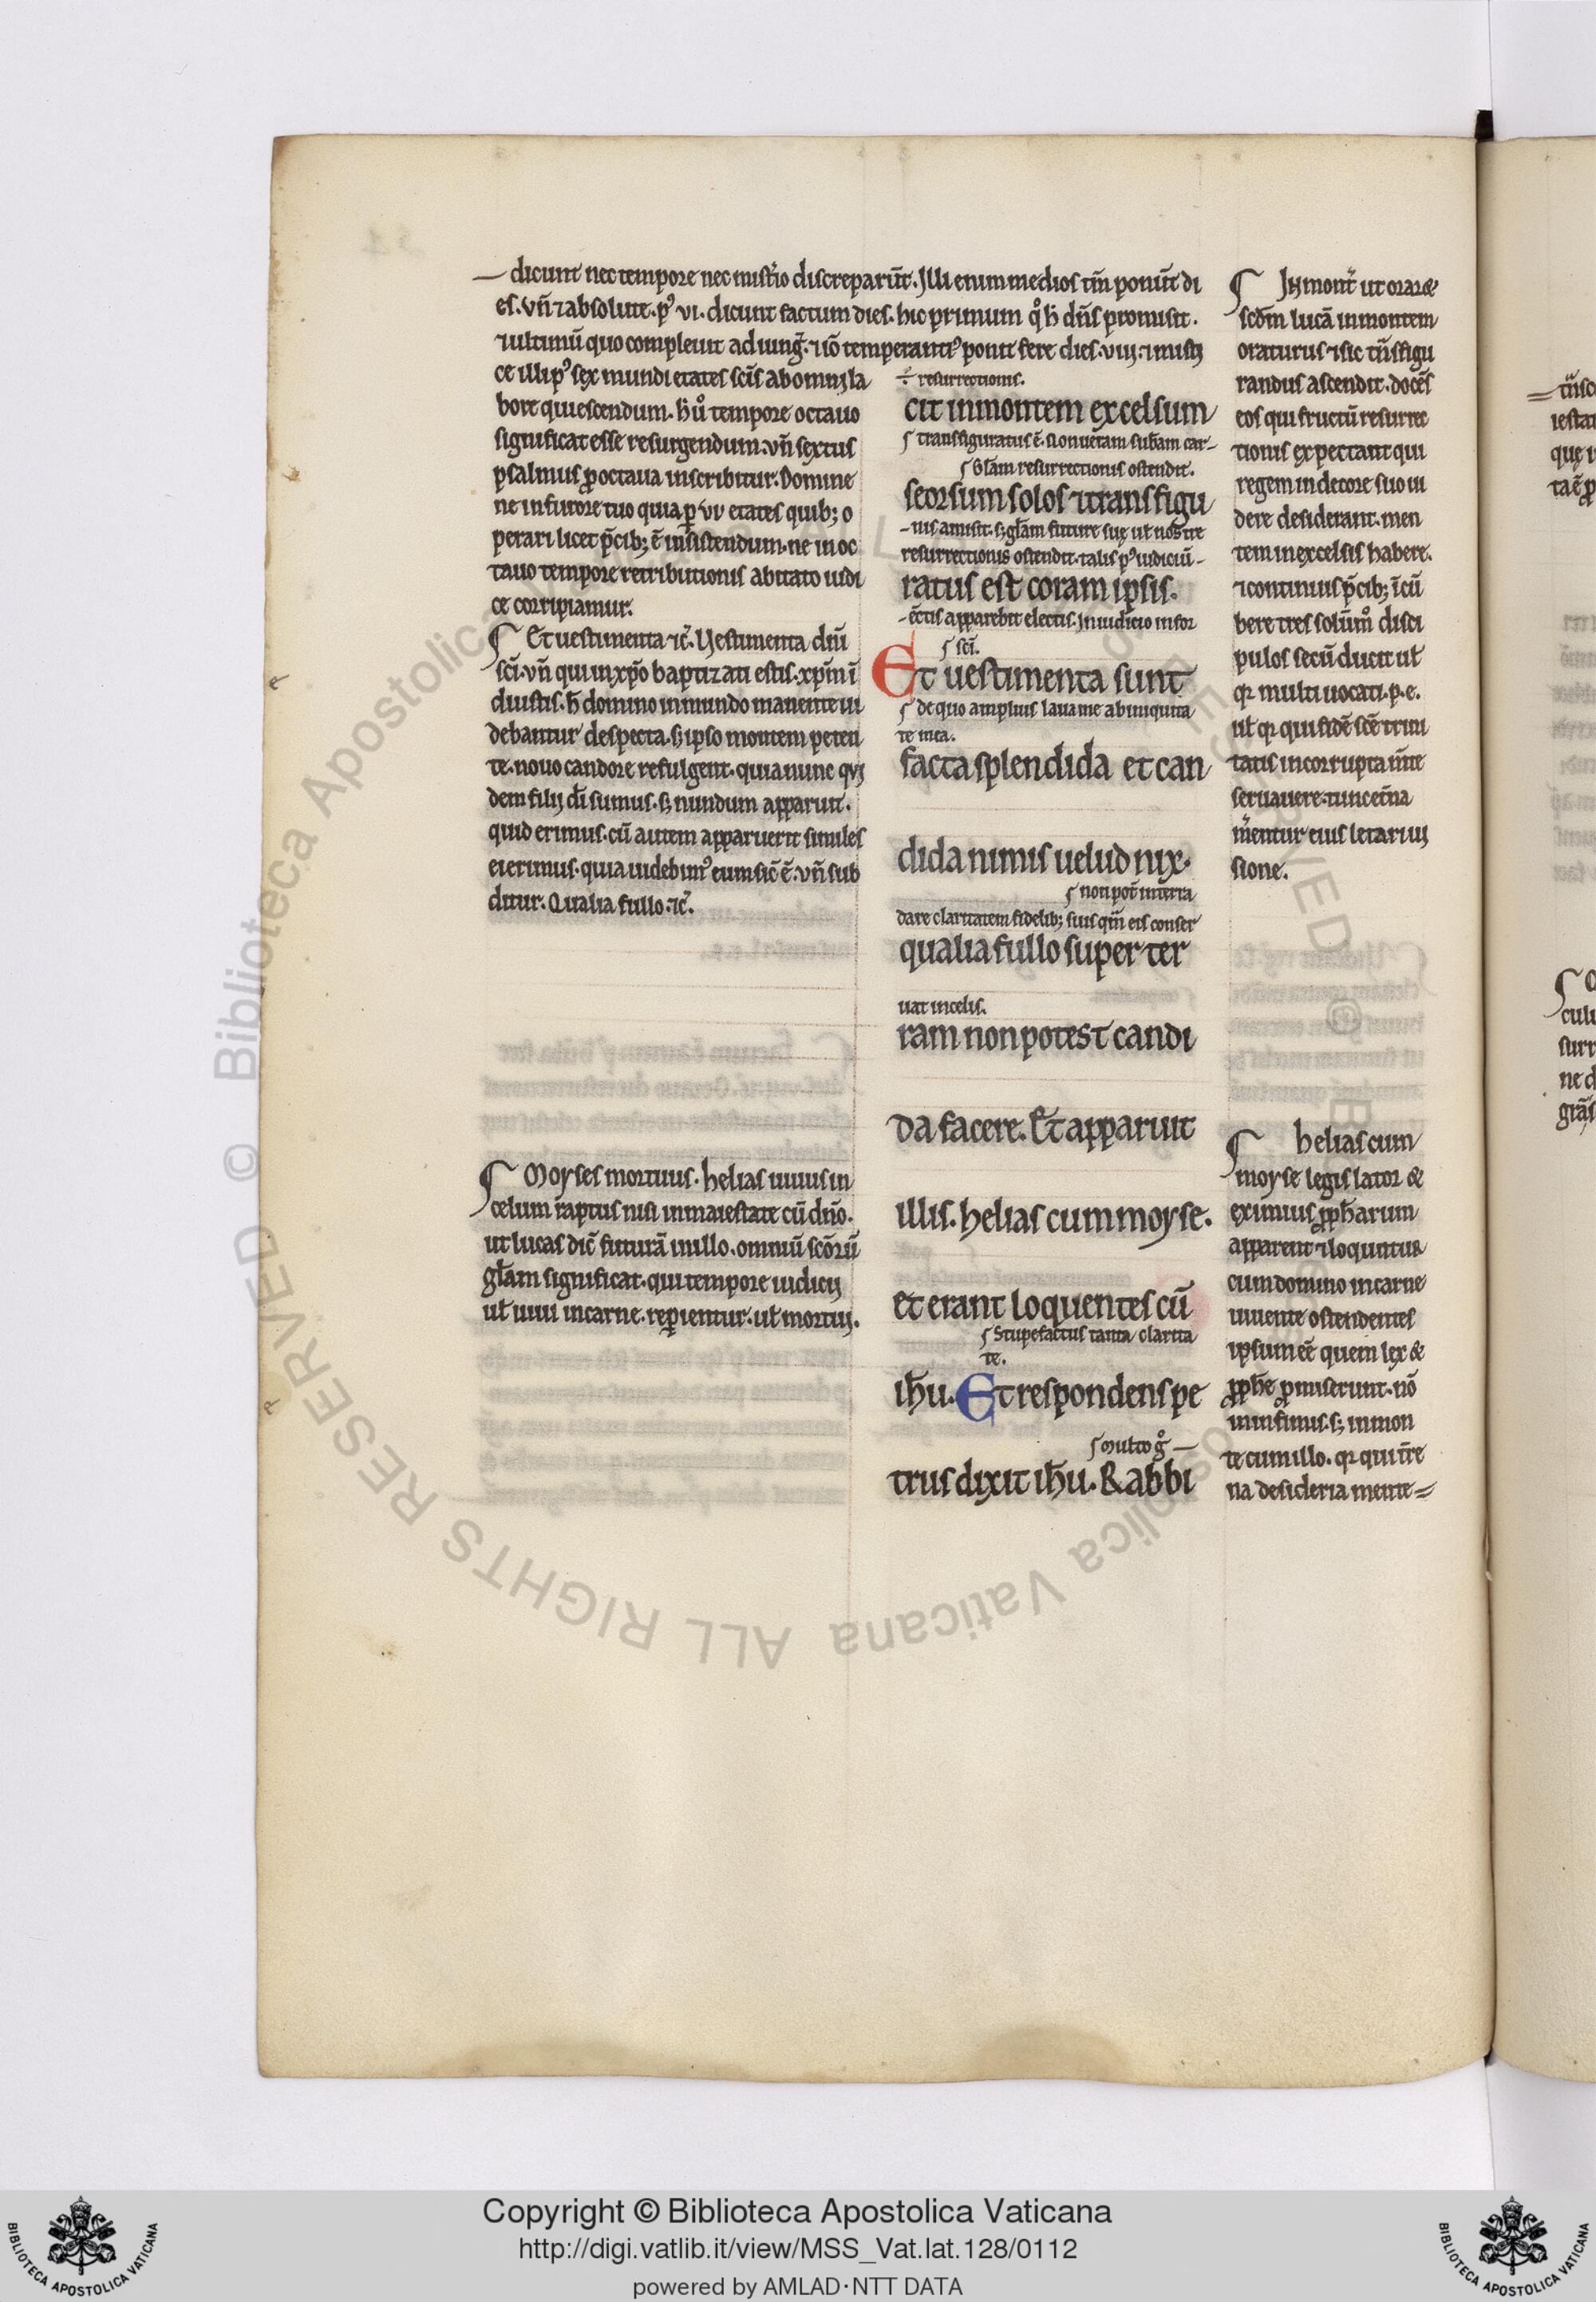 dicunt nec tempore nec mist̄io discreparūt. Illi enim medios tm̄ ponūt di
es. vñ ⁊ absolute. pꝰ vi. dicunt factum dies. hic primum qͦ h̄ dn̄s promisit.
⁊ ultimū quo compleuit adiung̃. ⁊ iō temperantiꝰ ponit fere dies. viii.
ce illi pꝰ sex mundi etates scīs ab omni la
bore quiescendum. h̄ uͦ tempore octauo
significat esse resurgendum. vñ sextus
psalmus ꝓ octaua inscribitur. Domine
ne in furore tuo quia ꝑ vi etates quib; o
perari licet p̄cib; ē insistendum. ne in oc
tauo tempore retributionis ab irato iudi
ce corripiamur.
Et uestimenta ⁊c̄. Vestimenta dn̄i
scī. vñ qui in xp̄o baptizati estis. xp̄m ī
duistis. h̄ domino in mundo manente ui
debantur despecta. s; ipso montem peten
te. nouo candore refulgent. quia nunc qui
dem filii dī sumus. s; nundum apparuit.
quid erimus. cū autem apparuerit similes
ei erimus. quia uidebimꝰ eum sic̄ ē. vñ sub
ditur. Qualia fullo. ⁊c̄.
Moyses mortuus. helias uiuus in
celum raptus nisi in maiestate cū dn̄o.
ut lucas dic̄ futurā in illo. omniū scōrū
gl̄am significat. qui tempore iudicii
ul̄ uiui in carne. repientur. ul̄ mortui.
÷ resurrectionis.
cit in montem excelsum
transfiguratus ē. n̄ non ueram sub̄am car-
gl̄am resurrectionis ostendit.
seorsum solos ⁊ transfigu
-nis amisit. s; gl̄am future sue ul̄ nostre
resurrectionis ostendit. talis pꝰ iudiciū-
ratus est coram ipsis.
-ēctis apparebit electis. In iudicio in for
scī.
Et uestimenta sunt
de quo amplius laua me ab iniquita
te mea.
facta splendida et can
dida nimis uelud nix.
non pot̄ in terra
dare claritatem fidelib; suis qm̄ eis conser
qualia fullo super ter
uat in celis.
ram non potest candi
da facere. Et apparuit
illis. helias cum moyse.
et erant loquentes cū
Stupefactus tanta clarita
te.
ih̄u. Et respondens pe
multo g̊ —
trus dixit ih̄u. Rabbi
In mont̄ ut oraret
scd̄m lucā in montem
oraturus ⁊ sic tn̄sfigu
randus ascendit. docēs
eos qui fructū resurrec
tionis expectant qui
regem in decore suo ui
dere desiderant. men
tem in excelsis habere.
⁊ continuis p̄cib; īcū
bere tres solūm̊ disci
pulos secū ducit ul̄
qr multi uocati. p. e.
ul̄ qr qui fidē scē trini
tatis incorrupta m̄te
seruauere. tunc et̄na
m̄entur eius letari ui
sione.
helias cum
moyse legis lator &
eximius ꝓph̄arum
apparent ⁊ loquntur
cum domino in carne
uiuente ostendentes
ipsum eē quem lex &
ꝓph̄e ꝓmiserunt. nō
in infimis. s; in mon
te cum illo. qr qui t̄re
na desideria mente=
Copyright © Biblioteca Apostolica Vaticana
http://digi.vatlib.it/view/MSS_Vat.lat.128/0112
powered by AMLAD·NTT DATA